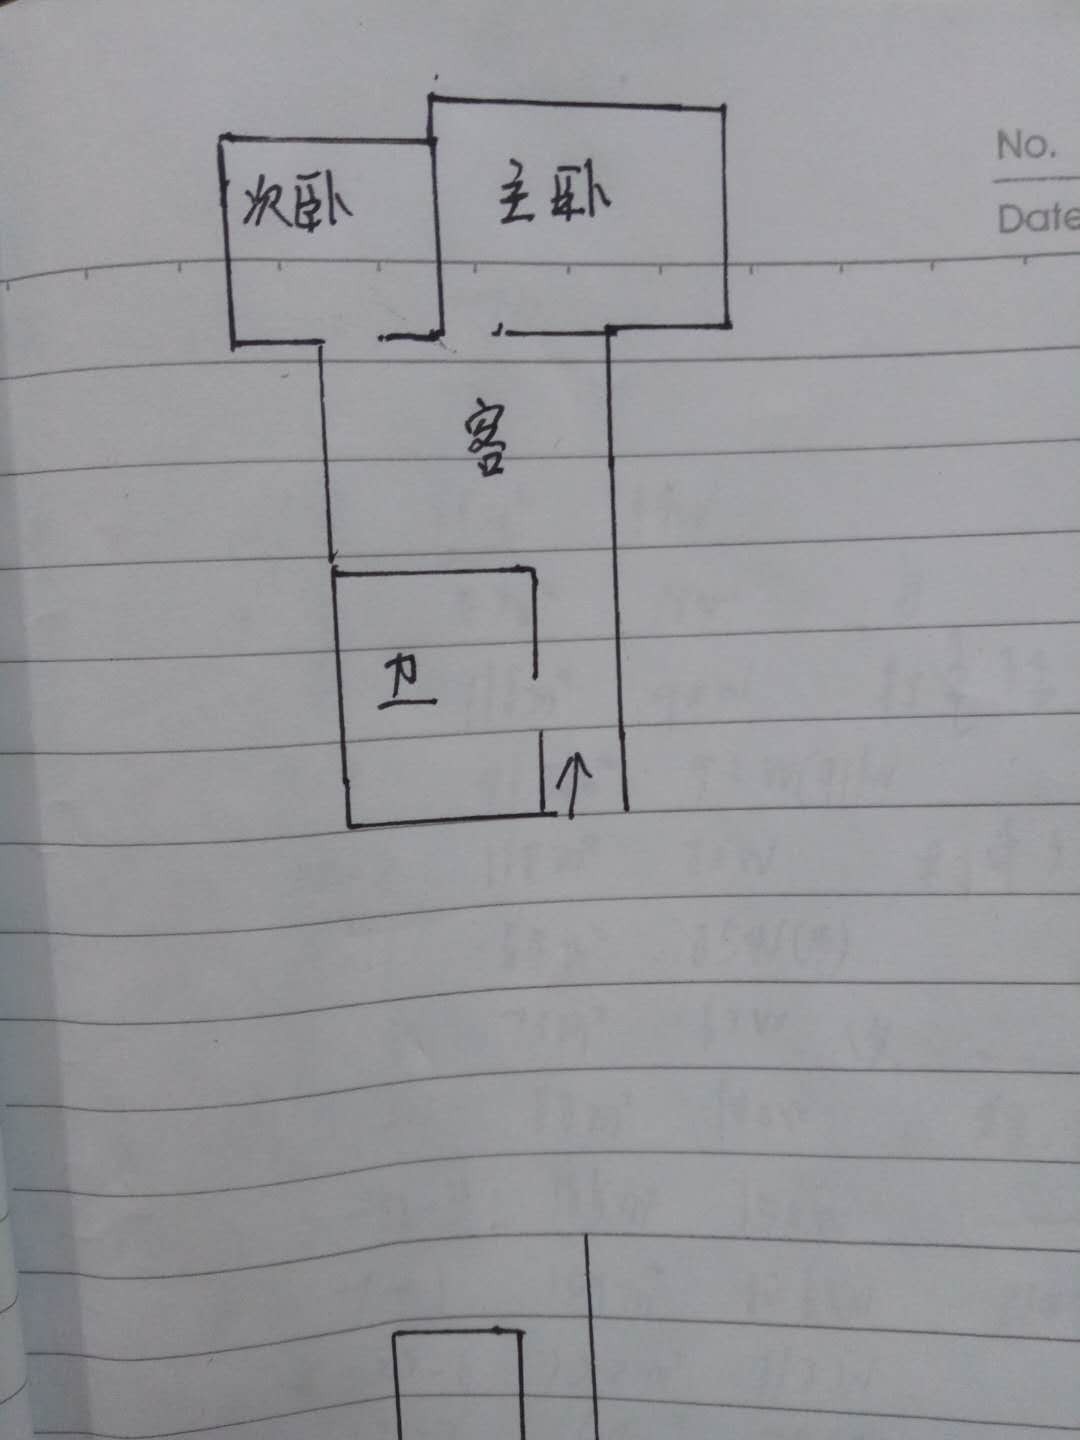 No.
Date
次卧
主卧
客
卫